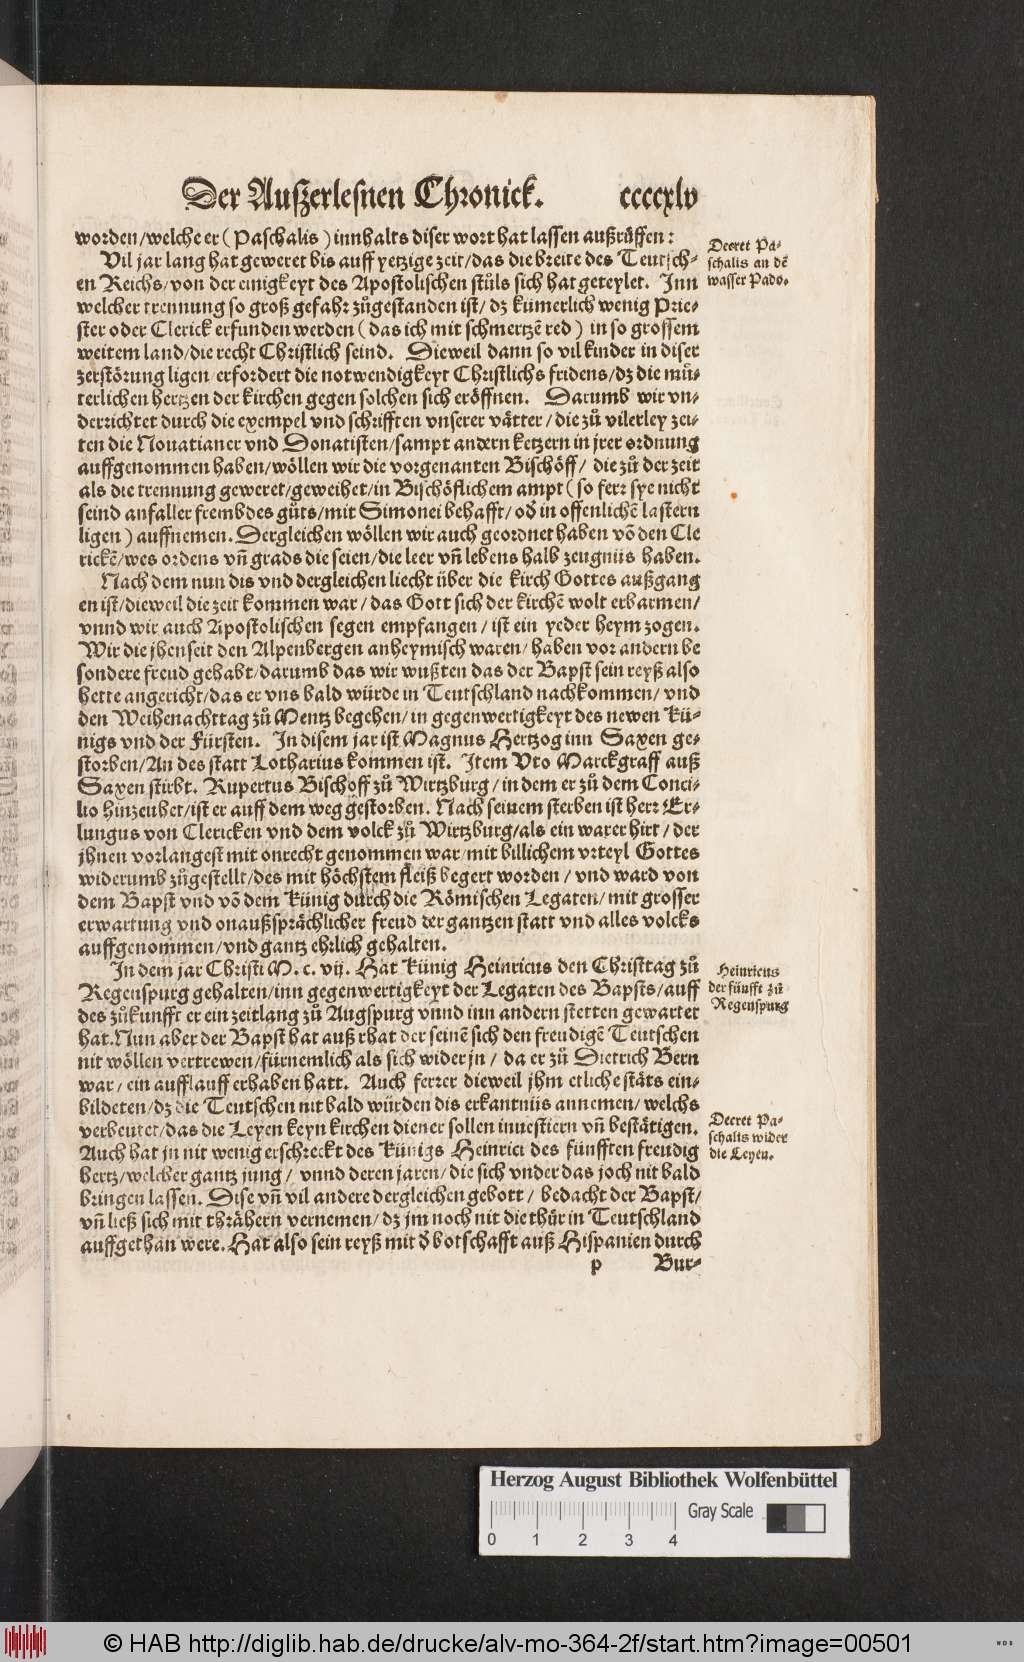 Der Außerlesnen Chronick. ccccxlv
worden/welche er (Paschalis) innhalts diser wort hat lassen außrůffen:
Vil jar lang hat geweret bis auff yetzige zeit/das die breite des Teutsch-
en Reichs/von der einigkeyt des Apostolischen stůls sich hat geteylet. Inn
welcher trennung so groß gefahr zůgestanden ist/ dz kümerlich wenig Prie-
ster oder Clerick erfunden werden (das ich mit schmertzē red) in so grossem
weitem land/die recht Christlich seind. Dieweil dann so vil kinder in diser
zerstörung ligen/erfordert die notwendigkeyt Christlichs fridens/dz die můt-
terlichen hertzen der kirchen gegen solchen sich eröffnen. Darumb wir vn-
derrichtet durch die exempel vnd schrifften vnserer vätter/die zů vilerley zei-
ten die Nouatianer vnd Donatisten/sampt andern ketzern in jrer ordnung
auffgenommen haben/wöllen wir die vorgenanten Bischöff/ die zů der zeit
als die trennung geweret/geweihet/in Bischöflichem ampt (so ferr sye nicht
seind anfaller frembdes gůts/mit Simonei behafft/ od in offenlichē lastern
ligen) auffnemen. Dergleichen wöllen wir auch geordnet haben vō den Cle
rickē/wes ordens vñ grads die seien/die leer vñ lebens halb zeugnüs haben.
Nach dem nun dis vnd dergleichen liecht über die kirch Gottes außgang
en ist/dieweil die zeit kommen war/ das Gott sich der kirchē wolt erbarmen/
vnnd wir auch Apostolischen segen empfangen/ ist ein yeder heym zogen.
Wir die jhenseit den Alpenbergen anheymisch waren/ haben vor andern be
sondere freud gehabt/darumb das wir wußten das der Bapst sein reyß also
hette angericht/das er vns bald würde in Teutschland nachkommen/ vnd
den Weihenachttag zů Mentz begehen/in gegenwertigkeyt des newen Kü-
nigs vnd der Fürsten. In disem jar ist Magnus Hertzog inn Saxen ge-
storben/An des statt Lotharius kommen ist. Item Vto Marckgraff auß
Saxen stirbt. Rupertus Bischoff zů Wirtzburg/ in dem er zů dem Conci-
lio hinzeuhet/ist er auff dem weg gestorben. Nach seinem sterben ist herr Er-
lungus von Clericken vnd dem volck zů Wirtzburg/als ein warer hirt/ der
jhnen vorlangest mit onrecht genommen war/mit billichem vrteyl Gottes
widerumb zůgestellt/des mit höchstem fleiß begert worden/ vnd ward von
dem Bapst vnd vō dem Künig durch die Römischen Legaten/mit grosser
erwartung vnd onaußsprächlicher freud der gantzen statt vnd alles volcks
auffgenommen/vnd gantz ehrlich gehalten.
In dem jar Christi M. c. vij. Hat Künig Heinricus den Christtag zů
Regenspurg gehalten/inn gegenwertigkeyt der Legaten des Bapsts/auff
des zůkunfft er ein zeitlang zů Augspurg vnnd inn andern stetten gewartet
hat. Nun aber der Bapst hat auß rhat der seinē sich den freudigē Teutschen
nit wöllen vertrewen/fürnemlich als sich wider jn/ da er zů Dietrich Bern
war/ ein aufflauff erhaben hatt. Auch ferrer dieweil jhm etliche stäts ein-
bildeten/dz die Teutschen nit bald würden dis erkantnüs annemen/ welchs
verbeutet/das die Leyen keyn kirchen diener sollen inuestiern vñ bestätigen.
Auch hat jn nit wenig erschreckt des Künigs Heinrici des fünfften freudig
hertz/welcher gantz jung/ vnnd deren jaren/die sich vnder das joch nit bald
bringen lassen. Dise vñ vil andere dergleichen gebott/ bedacht der Bapst/
vñ ließ sich mit thrähern vernemen/dz jm noch nit die thür in Teutschland
auffgethan were. Hat also sein reyß mit d botschafft auß Hispanien durch
p Bur-
Decret Pa-
schalis an dē
wasser Pado.
Heinricus
der fünfft zů
Regenspurg
Decret Pa-
schalis wider
die Leyen.
Herzog August Bibliothek Wolfenbüttel
0 1 2 3 4 Gray Scale
© HAB http://diglib.hab.de/drucke/alv-mo-364-2f/start.htm?image=00501